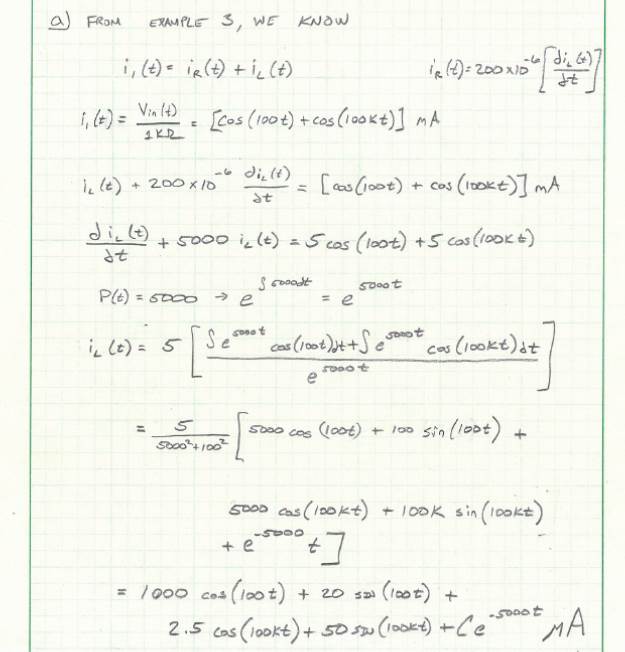 a) FROM EXAMPLE 3, WE KNOW
i₁(t) = i_R(t) + i_L(t)    i_R(t) = 200×10⁻⁶ [di_L(t)/dt]
i₁(t) = Vin(t)/1KΩ = [cos(100t) + cos(100Kt)] mA
i_L(t) + 200×10⁻⁶ di_L(t)/dt = [cos(100t) + cos(100Kt)] mA
di_L(t)/dt + 5000 i_L(t) = 5 cos(100t) + 5 cos(100Kt)
P(t) = 5000 → e^∫5000dt = e^5000t
i_L(t) = 5 [(∫e^5000t cos(100t)dt + ∫e^5000t cos(100Kt)dt)/e^5000t]
= 5/(5000²+100²) [5000 cos(100t) + 100 sin(100t) +
5000 cos(100Kt) + 100K sin(100Kt)
+ e^-5000 t]
= 1000 cos(100t) + 20 sin(100t) +
2.5 cos(100Kt) + 50 sin(100Kt) + Ce^-5000t μA